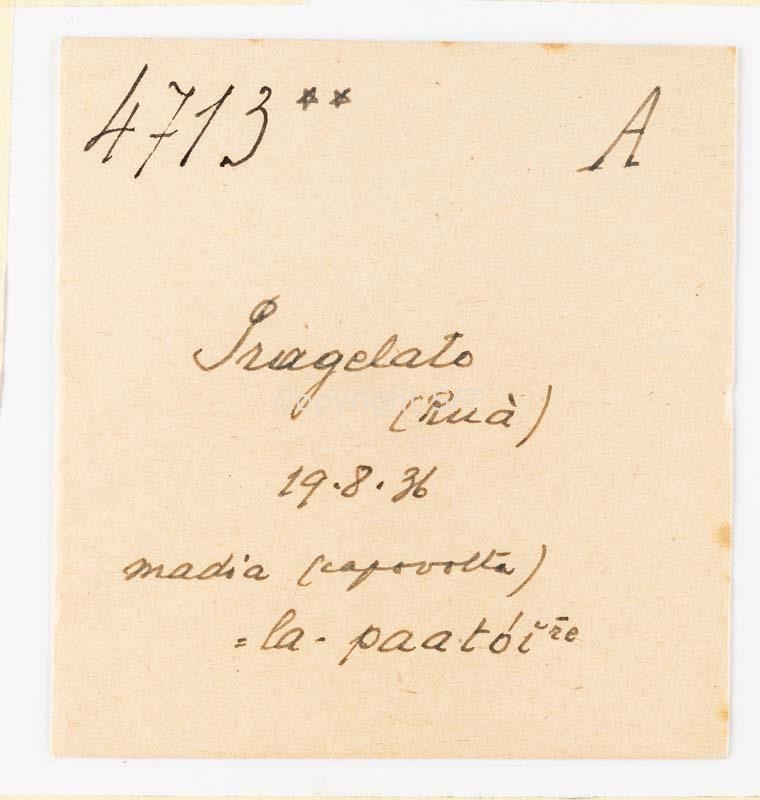 4713** A
Pragelato
(Ruà)
19.8.36
madia (capovolta)
= la - paatói̯re